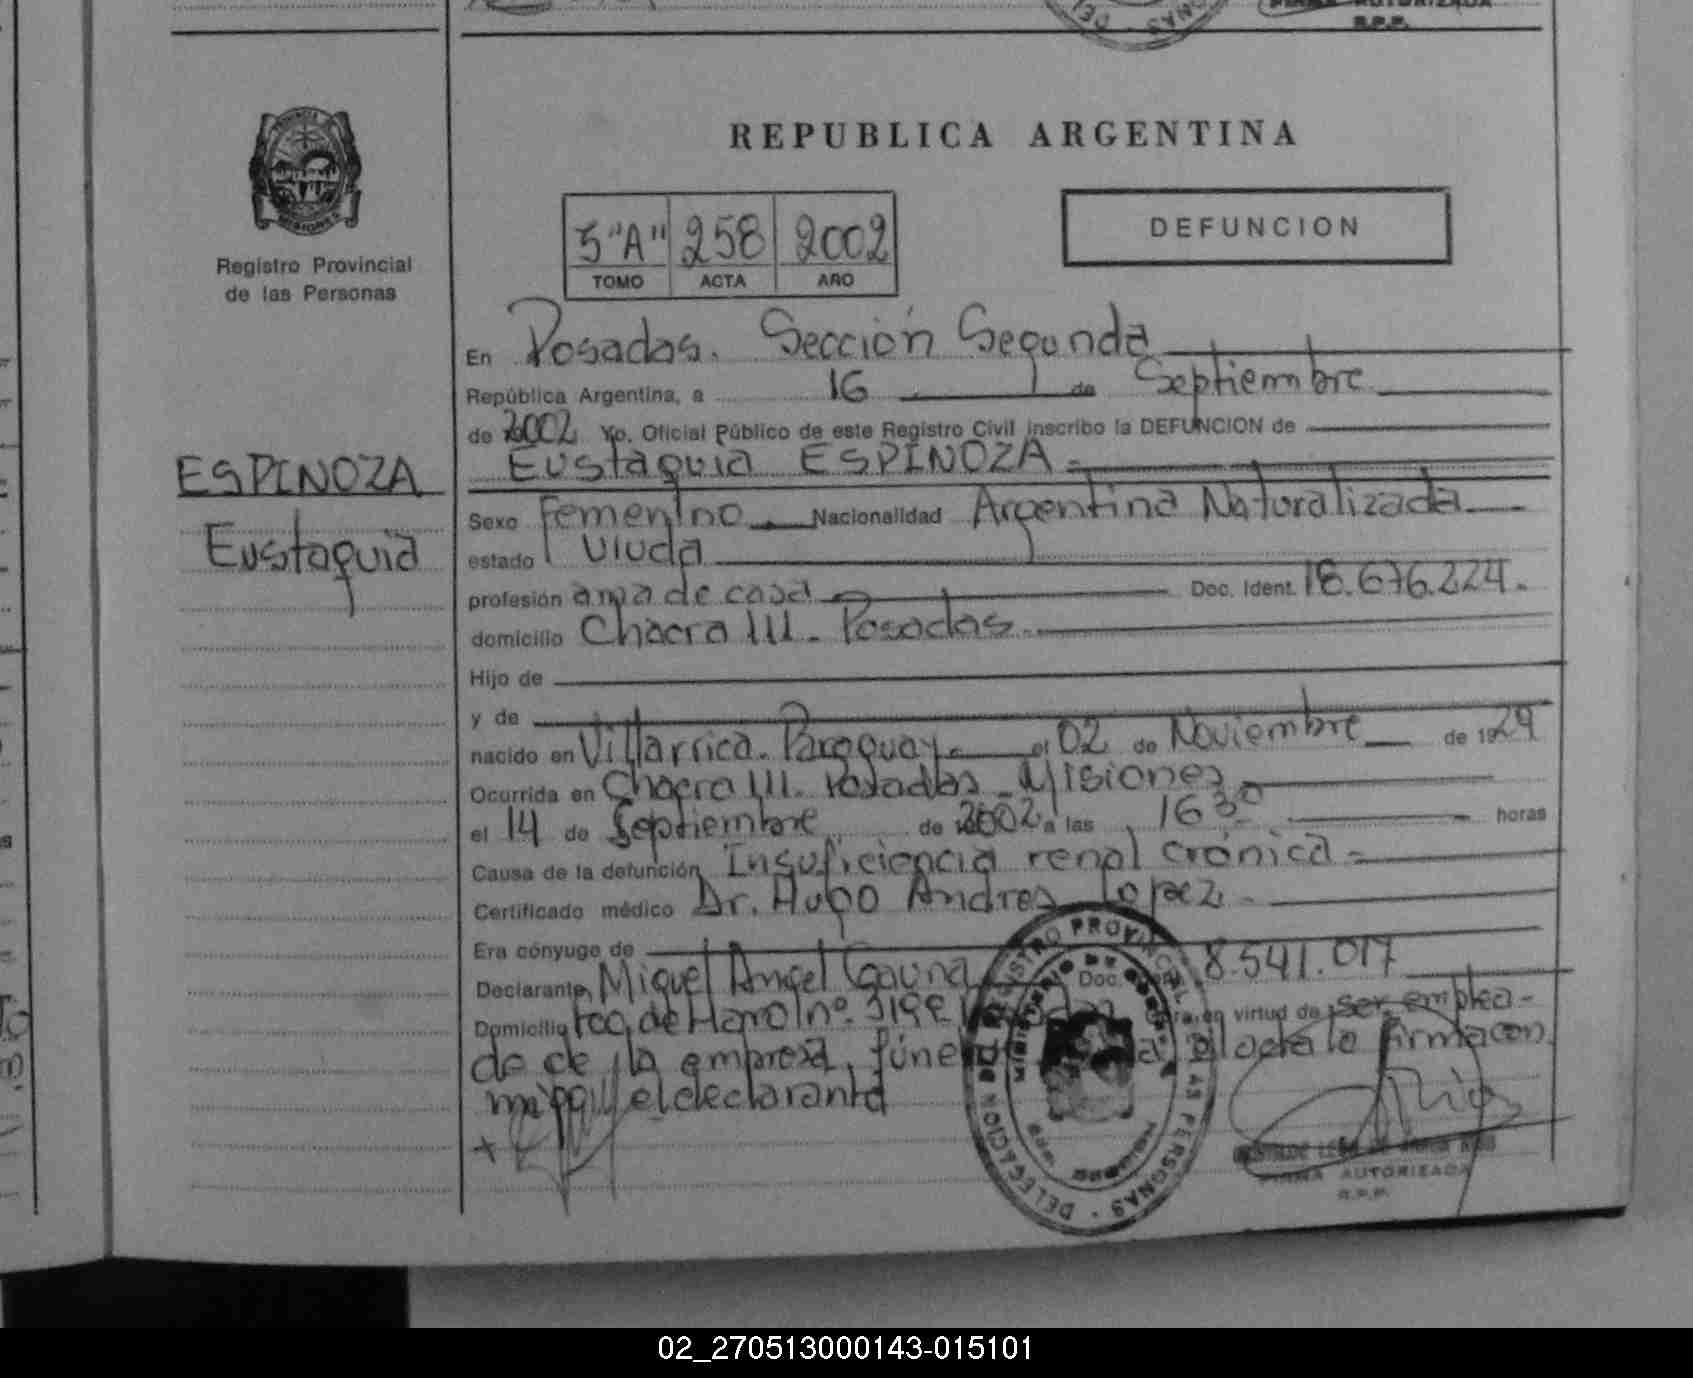 FIRMA AUTORIZADA
R.P.P.
REPUBLICA ARGENTINA
Registro Provincial
de las Personas
5"A" 258 2002
TOMO ACTA AÑO
DEFUNCION
En Posadas. Sección Segunda
República Argentina, a 16 de Septiembre
de 2002 Yo, Oficial Público de este Registro Civil inscribo la DEFUNCION de
Eustaquia ESPINOZA
ESPINOZA
Eustaquia
Sexo Femenino Nacionalidad Argentina Naturalizada
estado Viuda
profesión ama de casa Doc. Ident. 18.676.224.
domicilio Chacra 111. Posadas.
Hijo de
y de
nacido en Villarrica. Paraguay. el 02 de Noviembre de 1929
Ocurrida en Chacra 111. Posadas. Misiones
el 14 de Septiembre de 2002 a las 16 30 horas
Causa de la defunción Insuficiencia renal crónica
Certificado médico Dr. Hugo Andres Lopez
Era cónyuge de
Declarante Miguel Angel Gauna Doc. 8.541.017
Domicilio Fco. de Haro nº. 3199 en virtud de ser emplea-
do de la empresa fúne el acta lo firma con
migo el declarante
REGISTRO PROVINCIAL DE LAS PERSONAS - DELEGACION
MINISTERIO DE GOBIERNO
FIRMA AUTORIZADA
R.P.P.
02_270513000143-015101